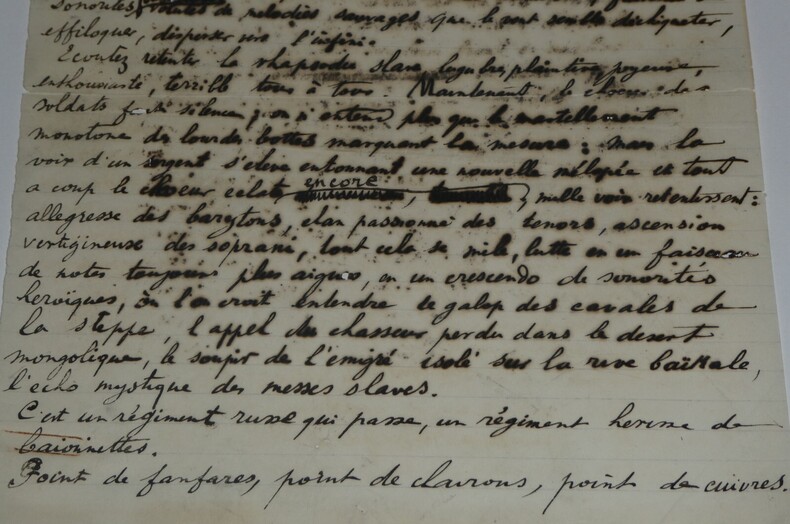 sonorités, de mélodies sauvages que le vent semble déchiqueter,
effilocher, disperser vers l'infini.
Ecoutez retentir la rhapsodie slave, lugubre, plaintive, joyeuse,
enthousiaste, terrible tour à tour. Maintenant, le choeur des
soldats fait silence; on n'entend plus que le martellement
monotone de lourdes bottes marquant la mesure; mais la
voix d'un sergent s'eleve entonnant une nouvelle mélopée et tout
a coup le choeur eclate encore; mille voix retentissent:
allegresse des barytons, elan passionné des tenors, ascension
vertigineuse des soprani, tout cela se mêle, lutte en un faisceau
de notes toujours plus aigues, en un crescendo de sonorités
heroïques, où l'on croit entendre le galop des cavales de
la steppe, l'appel du chasseur perdu dans le desert
mongolique, le soupir de l'émigré isolé sur la rive baïkale,
l'echo mystique des messes slaves.
C'est un régiment russe qui passe, un régiment herissé de
baionnettes.
Point de fanfares, point de clairons, point de cuivres.